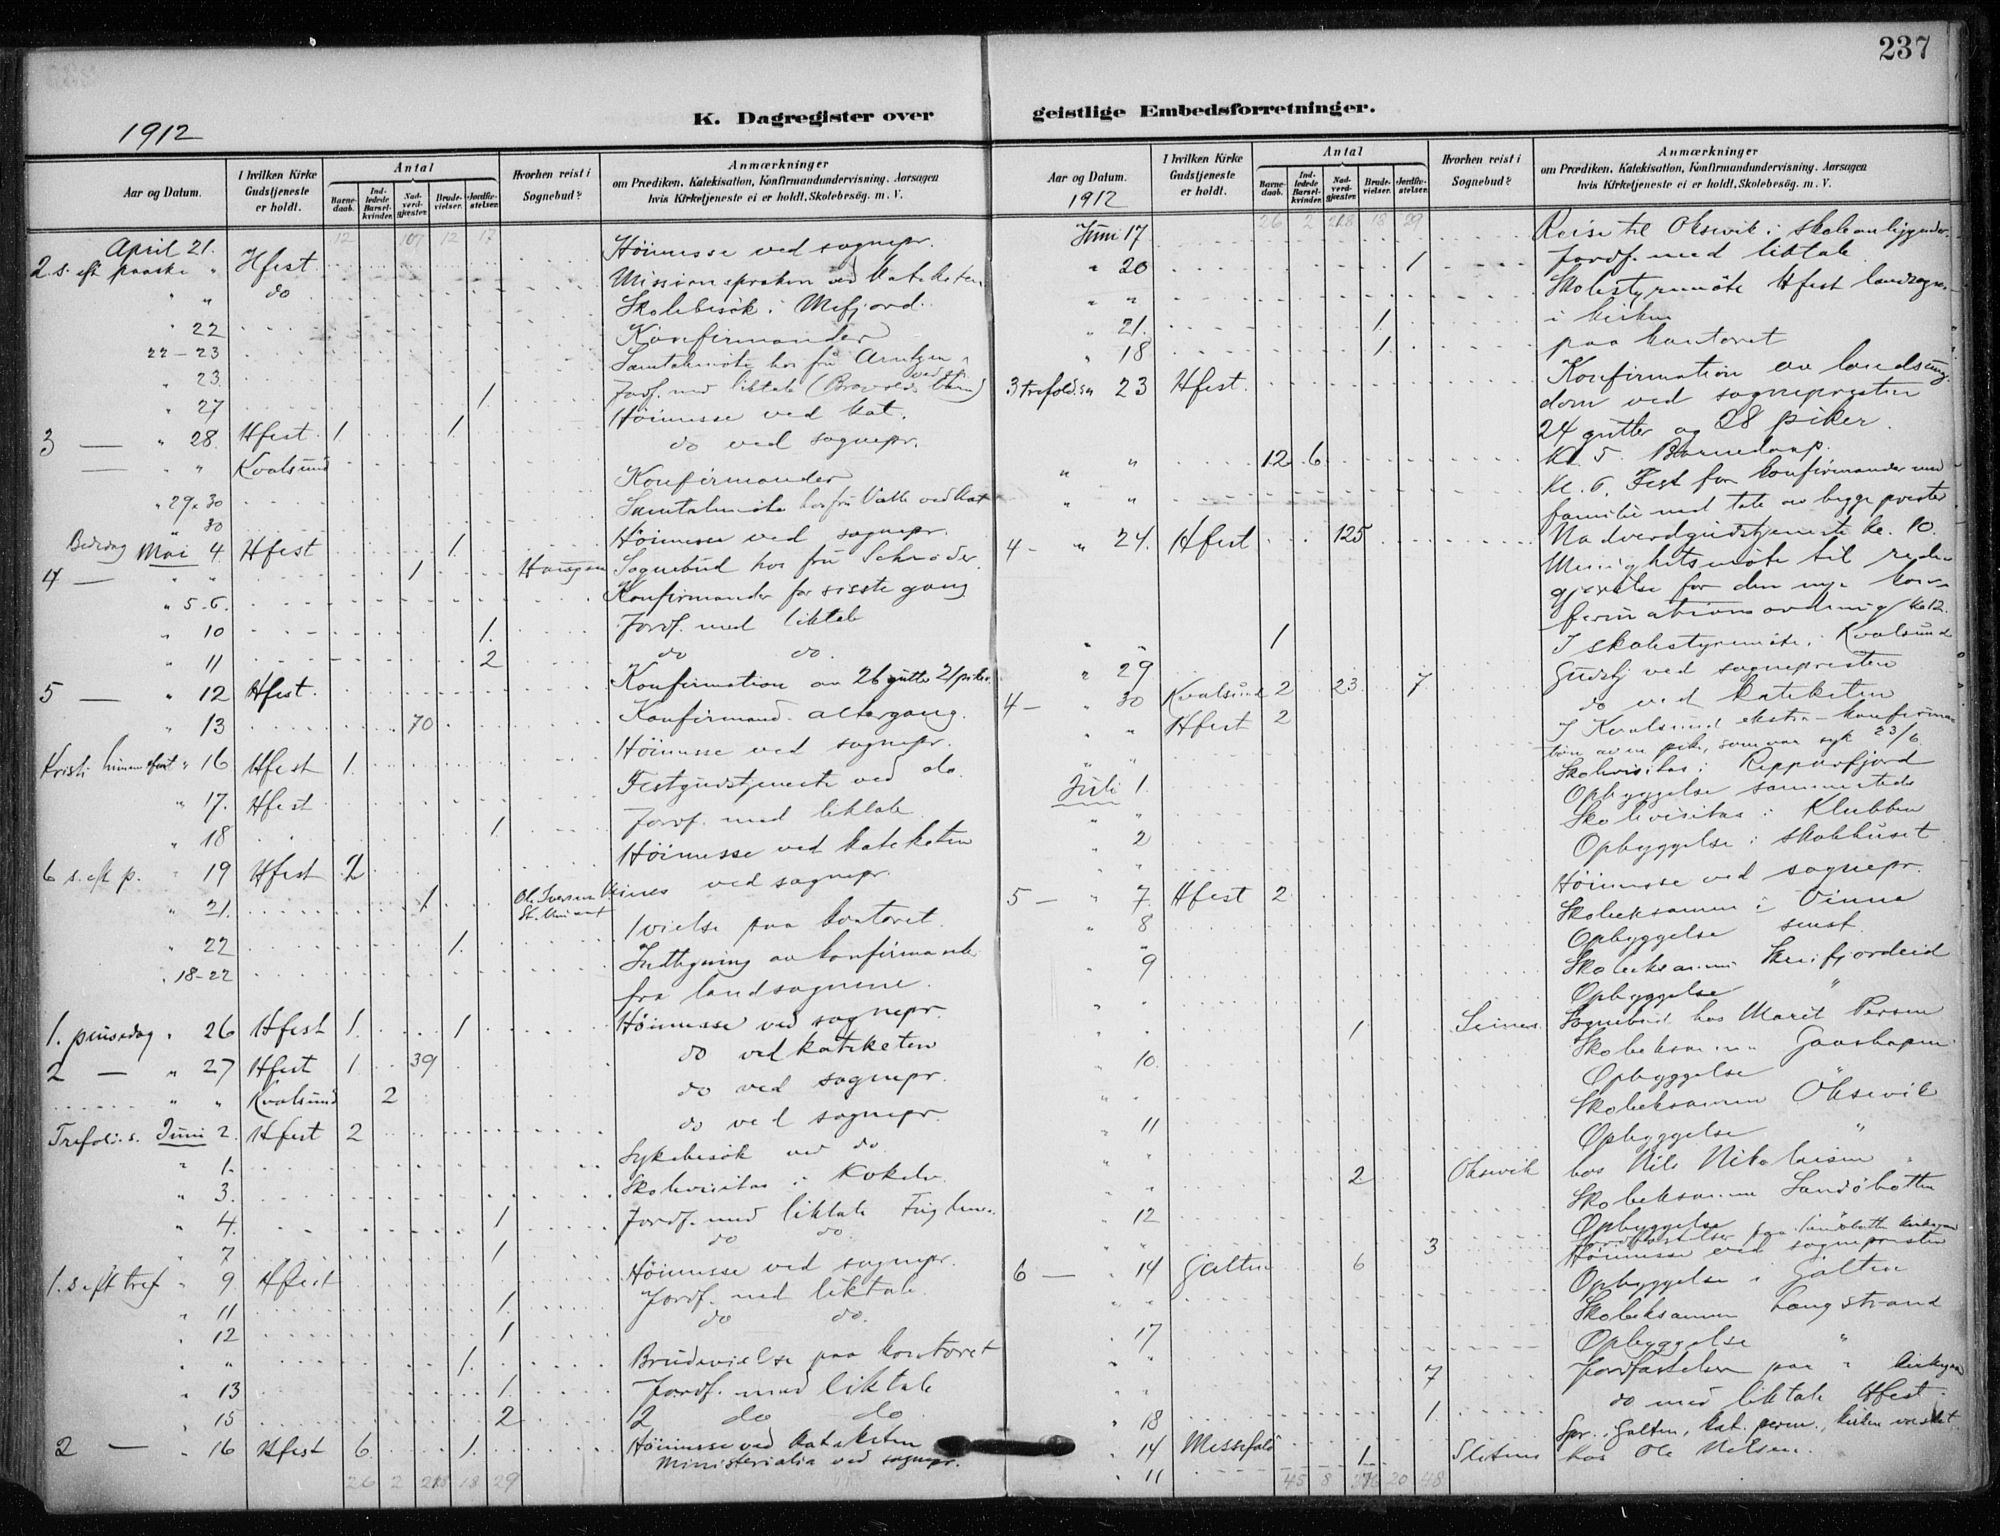 237
K. Dagregister over
geistlige Embedsforretninger.
1912
Aar og Datum.
I hvilken Kirke Gudstjeneste er holdt.
Antal
Barnedaab.
Indledede Barselkvinder.
Nadverdgjester.
Brudevielser.
Jordfæstelser.
Hvorhen reist i Sognebud?
Anmærkninger
om Prædiken, Katekisation, Konfirmandundervisning, Aarsagen
hvis Kirketjeneste ei er holdt, Skolebesøg, m. V.
12 107 12 17
April 21.
2. s. eft paaske " Hfest Höimesse ved sognepr.
" " do Missionspræken ved kateketen
Skolebesök i Mefjord.
" 22 Konfirmander
22-23 Samtalemöte hos fru Arntzen
" 23.
" 27 1 Jordf. med liktale
3 — " 28. Hfest 1 1. Höimesse ved kat.
— " " Kvalsund do ved sognepr.
" 29 & 30 Konfirmander
30 Samtalemöte hos fru Valle ved kat
Bededag Mai 4 Hfest 1. Höimesse ved sognepr.
4 — " " 1 Sognebud hos fru Schröder.
" 5-6. Konfirmander for sisste gang
" 10 1. Jordf. med liktale
" 11 2 do do.
5 — " 12 Hfest. Konfirmation av 26 gutter 21 piker
" 13 70 Konfirmand. altergang.
Kristi himmelfart " 16 Hfest 1. Höimesse ved sognepr.
" 17. Hfest Festgudstjeneste ved do.
" 18 1 Jordf. med liktale
6 s. eft p. " 19 Hfest 2 Höimesse ved kateketen
" 21. 1 Ole Iversen ved sognepr.
" 22 1. 1 vielse paa kontoret
" 18-22 Indtegning av konfirmander
fra landsognene.
1. pinsedag " 26 Hfest 1. 1 Höimesse ved sognepr.
2 — " 27 Hfest 1 39 do ved kateketen
" " Kvalsund 2 do ved sognepr.
Trefold. s. Juni 2. Hfest 2 do ved sognepr.
" 1. Sykebesök ved do
" 3. Skolevisitas i Kokelv
" 4. 1 Jordf. med liktale
" 7 1 do do.
1. s eft tref " 9 Hfest Höimesse ved sognepr.
" 11 1. Jordf. med liktale.
" 12 1 do do.
" " 1. Brudevielse paa kontoret
" 13 1. Jordf. med liktale
" 15 2 2 do do
2 — " 16 Hfest 6 1. Höimesse ved kateketen
Ministerialia ved sognepr.
26 2 218 18 29
Aar og Datum.
1912
I hvilken Kirke Gudstjeneste er holdt.
Antal
Barnedaab.
Indledede Barselkvinder.
Nadverdgjester.
Brudevielser.
Jordfæstelser.
Hvorhen reist i Sognebud?
Anmærkninger
om Prædiken, Katekisation, Konfirmandundervisning, Aarsagen
hvis Kirketjeneste ei er holdt, Skolebesøg, m. V.
26 2 218 18 29
Juni 17 Reise til Oksevik i skoleanliggender.
" 20 1 Jordf. med liktale
" " Skolestyremöte Hfest landsogn
" 21. 1 i kirken
" 18 1 paa kontoret
3 trefold. sn 23 Hfest. Konfirmation av landsung-
dom ved sognepresten
24 gutter og 28 piker.
" " 12 6 Kl 5 Barnedaap.
" " Kl. 6. Fest for konfirmander med
familie med tale av begge prester
4 — " 24. Hfest 125 Nadverdgudstjeneste kl. 10.
Menighetsmöte til rede-
gjörelse for den nye kon-
firmationsordning kl 12.
" " 1
" 29 I skolestyremöte i Kvalsund
4 — " 30 Kvalsund 2 23 7 Gudstj ved sognepresten
" " Hfest 2 do ved kateketen
" " I Kvalsund ekstra-konfirma-
tion av en pike, som var syk 23/6
Juli 1. Skolevisitas i Repparfjord
" " Opbyggelse sammesteds
" 2 Skolevisitas i Klubben
" Opbyggelse i skolehuset
5 — " 7. Hfest 2 Höimesse ved sognepr.
" 8 Skoleeksamen i Vinna
" Opbyggelse smst
" 9 Skoleeksamen Skreifjordeid
" Opbyggelse "
" 1 Seines Sognebud hos Marit Persen
" 10. Skoleeksamen Gaashopen
" Opbyggelse "
" 11 Skoleeksamen Öksevik
" Opbyggelse "
" 2 Oksevik hos Nils Nikolaisen
" 12 Skoleeksamen Sandöbotten
" Opbyggelse
3 Jordfæstelser paa Sandöbotten kirkegaard
6 — " 14 Galten 6 Höimesse ved sognepresten
" " Opbyggelse i Galten
" 17 Skoleeksamen Langstrand
" " Opbyggelse "
" 7 Jordfæstelser paa " kirkegaard
" 18 1. do med liktale Hfest.
" 14 Messefald Spr. i Galten, kat. perm., kirken vasket
" 11 1 hos Ole Nilsen.
45 8 20 48